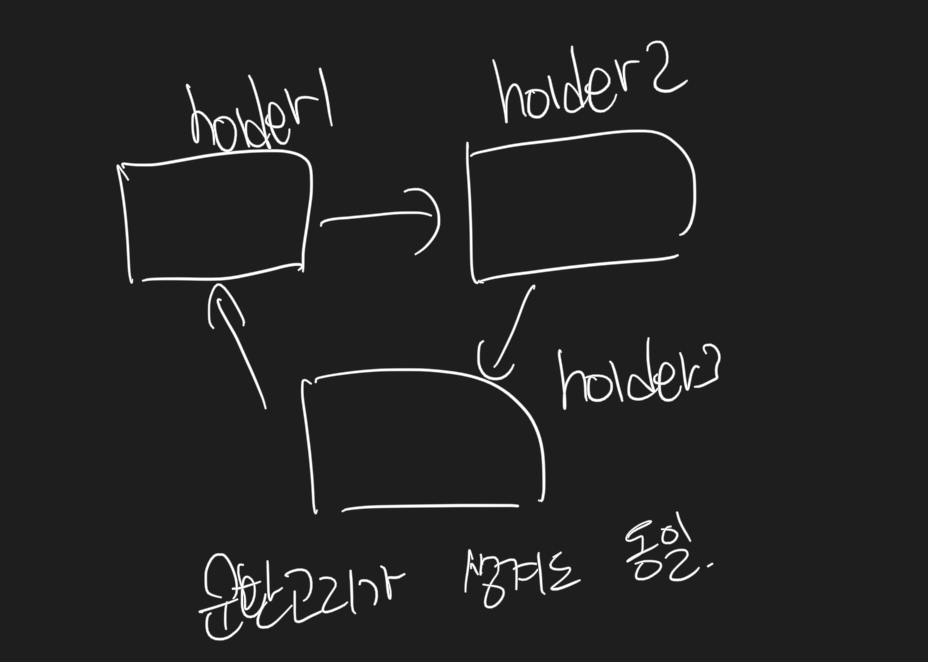 holder1
holder2
holder3
순환고리가 생겨도 동일.